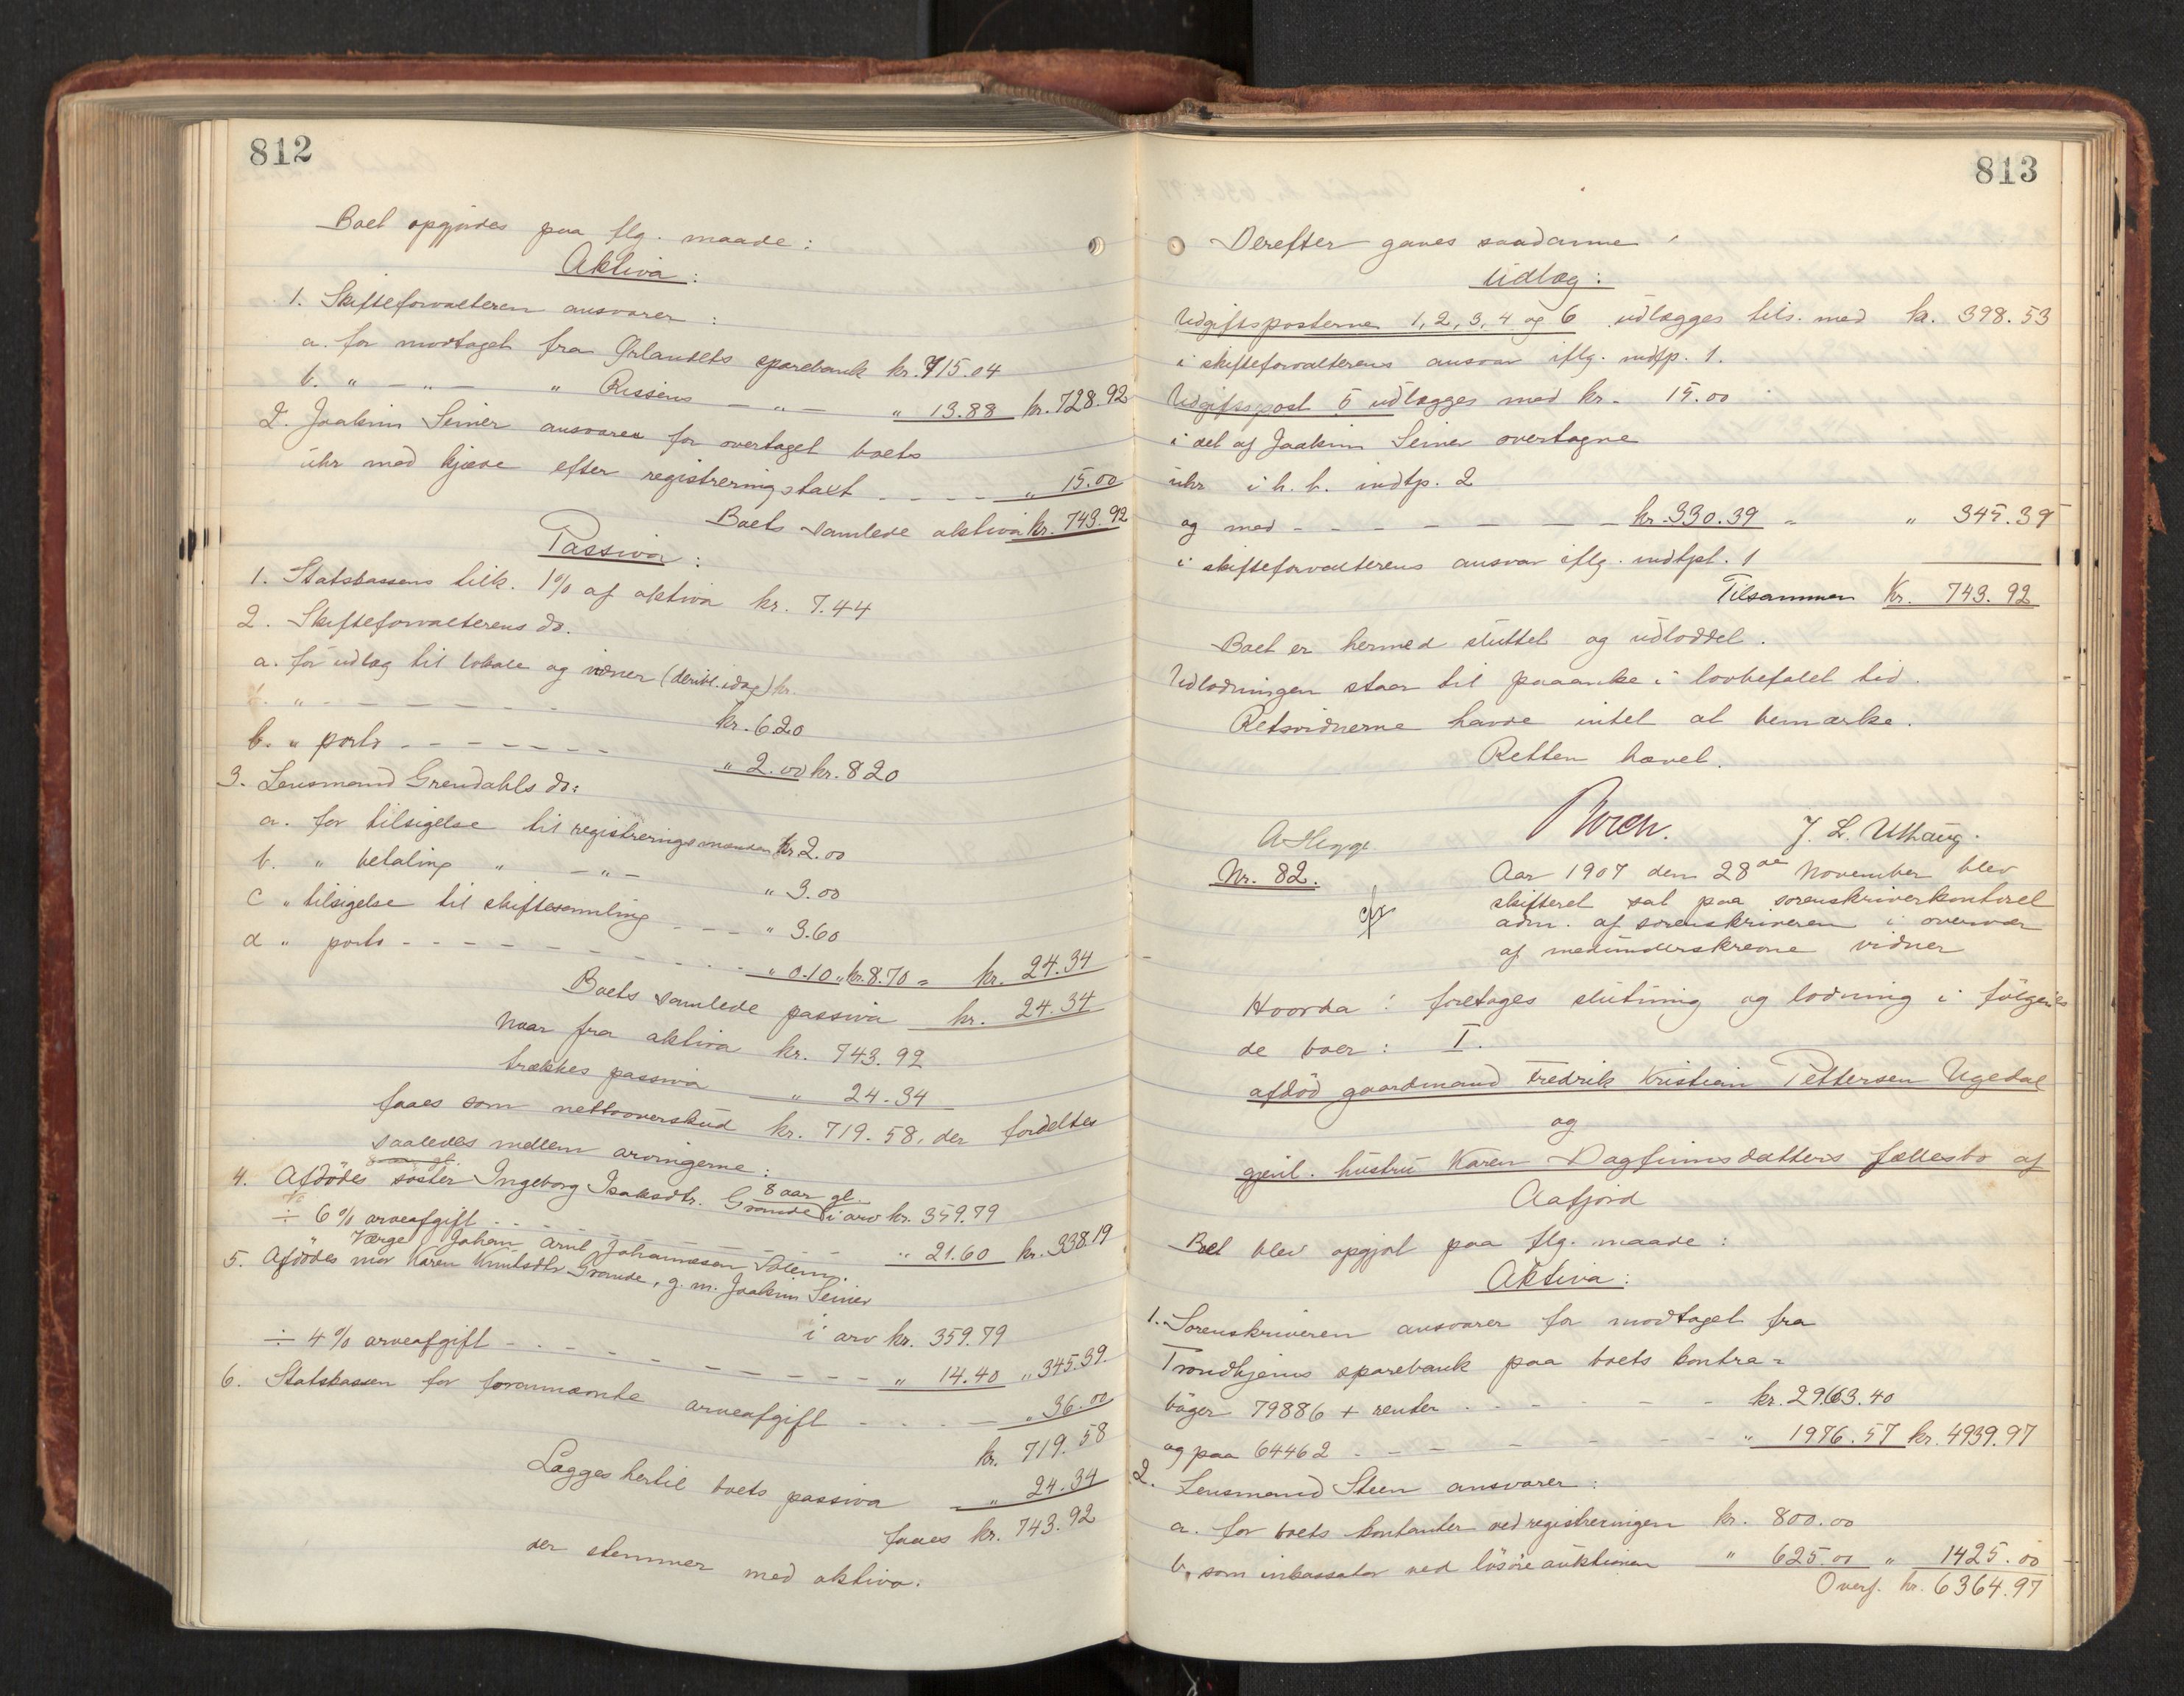 812
Boet opgjordes paa flg. maade:
Aktiva:
1. Skifteforvalteren ansvarer:
a. for modtaget fra Ørlandets sparebank kr. 715.04
b. " — " — " Rissens — " — " 13.88 kr. 728.92
2. Joakim Seiner ansvarer for overtaget boets
uhr med kjæde efter registreringstaxt - - - - " 15.00
Boets samlede aktiva kr. 743.92
Passiva:
1. Statskassens tilk. 1% af aktiva kr. 7.44
2. Skifteforvalterens do.
a. for udlæg til lokale og vidner (deribl. idag) kr.
kr. 6.20
b. " porto - - - - - - - " 2.00 kr. 8 20
3. Lensmand Grendahls do:
a. for tilsigelse til registreringsmænden kr 2.00
b. " betaling " — " — " 3.00
c " tilsigelse til skiftesamling - - - " 3.60
d " porto - - - - - - - - - " 0.10 " kr. 8.70 = kr. 24.34
Boets samlede passiva kr. 24.34
Naar fra aktiva kr. 743.92
trækkes passiva " 24.34
faaes som nettooverskud kr. 719.58, der fordeltes
saaledes mellem arvingerne:
4. Afdødes søster Ingeborg Isaksdtr. Grande 8 aar gl. i arv kr. 359.79
÷ 6% arveafgift - - - - - - " 21.60 kr. 338.19
Værge Johan Arnt Johannesen Solem.
5. Afdødes mor Karen Knutsdtr Grande, g. m. Joakim Seiner
i arv kr. 359.79
÷ 4% arveafgift - - - - - - - - - " 14.40 " 345.39.
6. Statskassen for forannævnte arveafgift - - - - " 36.00
kr. 719.58
Lægges hertil boets passiva " 24.34
faaes kr. 743.92
der stemmer med aktiva.
813
Derefter gaves saadanne
Udlæg:
Udgiftsposterne 1, 2, 3, 4 og 6 udlægges tils. med kr. 398.53
i skifteforvalterens ansvar iflg. indtp. 1.
Udgiftspost 5 udlægges med kr. 15.00
i det af Joakim Seiner overtagne
uhr i h. t. indtp. 2
og med - - - - - - - kr. 330.39 " " 345.39
i skifteforvalterens ansvar iflg. indtpt. 1
Tilsammen Kr. 743.92
Boet er hermed sluttet og udloddet.
Udlodningen staar til paaanke i lovbefalet tid.
Retsvidnerne havde intet at bemærke.
Retten hævet.
J. L. Uthaug.
Nr. 82.
Aar 1907 den 28de November blev
skifteret sat paa sorenskriverkontoret
adm. af sorenskriveren i overvær
af medunderskrevne vidner
Hvorda: foretages slutning og lodning i følgen=
de boer: I.
afdød gaardmand Fredrik Kristian Pettersen Ugedal
og
gjenl. hustru Karen Dagfinnsdatters fællesbo af
Aafjord
Boet blev opgjort paa flg. maade:
Aktiva:
1. Sorenskriveren ansvarer for modtaget fra
Trondhjems sparebank paa boets kontra=
bøger 79886 + renter - - - - - - kr. 2963.40
og paa 64462 - - - - - - - - " 1976.57 kr. 4939.97
2. Lensmand Steen ansvarer:
a. for boets kontanter ved registreringen kr. 800.00
b. som inkassator ved løsøreauktionen " 625.00 " 1425.00
Overf. kr. 6364.97